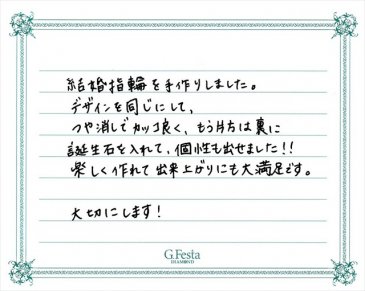 結婚指輪を手作りしました。
デザインを同じにして、
つや消しでカッコ良く、もう片方は裏に
誕生石を入れて、個性も出せました!!
楽しく作れて出来上がりにも大満足です。
大切にします!
G.Festa
DIAMOND